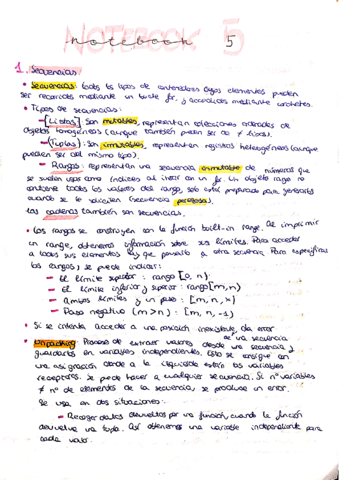 NOTEBOOK 5
notebook 5
1. Secuencias
• Secuencias: todos los tipos de contenedores cuyos elementos pueden
ser recorridos mediante un bucle for, y accedidos mediante corchetes.
• Tipos de secuencias:
- [Listas]: Son mutables, representan colecciones ordenadas de
objetos homogéneos (aunque también pueden ser de ≠ tipos).
- (Tuplas): Son inmutables, representan registros heterogéneos (aunque
pueden ser del mismo tipo).
- Rangos: representan una secuencia inmutable de números que
se suelen usar como índices al iterar en un for. Un objeto range no
contiene todos los valores del rango, solo está preparado para generarlos
cuando se le soliciten (secuencia perezosa).
Las cadenas también son secuencias.
• Los rangos se construyen con la función built-in range. Al imprimir
un range, obtenemos información sobre sus límites. Para acceder
a todos sus elementos hay que pasarlo a otra secuencia. Para especificar
los rangos, se puede indicar:
- El límite superior: range [0, n)
- El límite inferior y superior: range [m, n)
- Ambos límites y un paso: [m, n, x)
- Paso negativo (m > n): [m, n, -1)
• Si se intenta acceder a una posición inexistente, da error
de una secuencia
• Unpacking: Proceso de extraer valores desde una secuencia y
guardarlos en variables independientes. Esto se consigue con
una asignación donde a la izquierda estén las variables
receptoras. Se puede hacer a cualquier secuencia. Si nº variables
≠ nº de elementos de la secuencia, se produce un error.
Se usa en dos situaciones:
- Recoger datos devueltos por una función, cuando la función
devuelve una tupla. Así obtenemos una variable independiente para
cada valor.